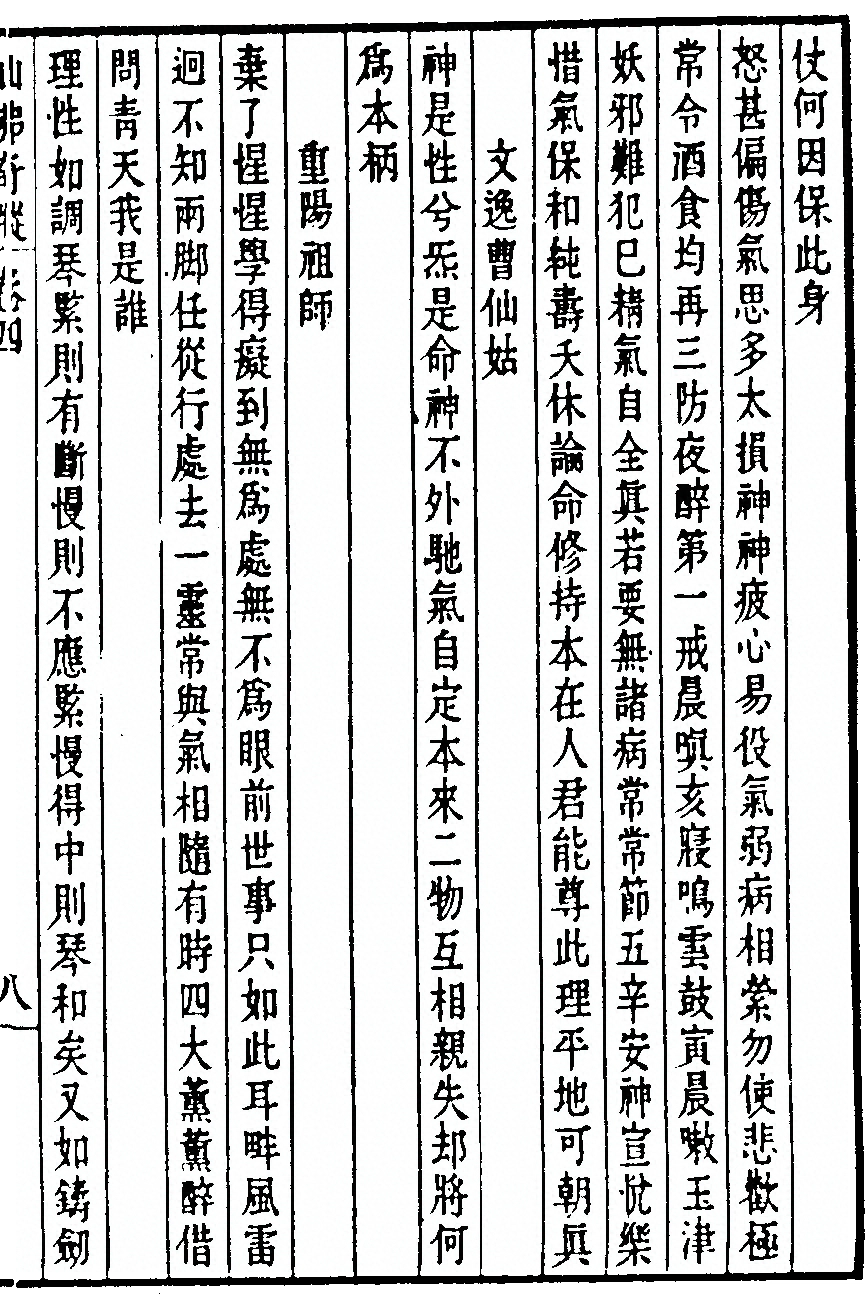 仗何因保此身
怒甚偏傷氣思多太損神神疲心易役氣弱病相縈勿使悲歡極
常令酒食均再三防夜醉第一戒晨嗔亥寢鳴雲鼓寅晨嗽玉津
妖邪難犯巳精氣自全眞若要無諸病常常節五辛安神宣悅樂
惜氣保和純壽夭休論命修持本在人君能尊此理平地可朝眞
文逸曹仙姑
神是性兮炁是命神不外馳氣自定本來二物互相親失却將何
爲本柄
重陽祖師
棄了惺惺學得癡到無爲處無不爲眼前世事只如此耳畔風雷
迴不知兩脚任從行處去一靈常與氣相隨有時四大薰薰醉借
問青天我是誰
理性如調琴緊則有斷慢則不應緊慢得中則琴和矣又如鑄劒
卷四
八